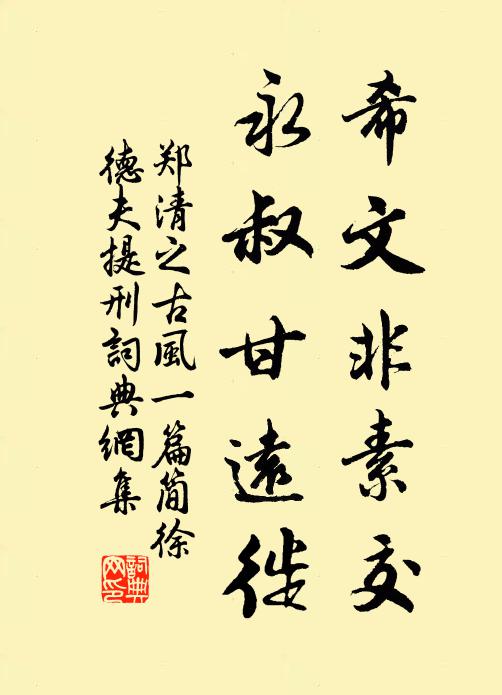 希文非素交
永叔甘遠徙
郑清之古風一篇简徐
德夫提刑詞典網集
詞典網印